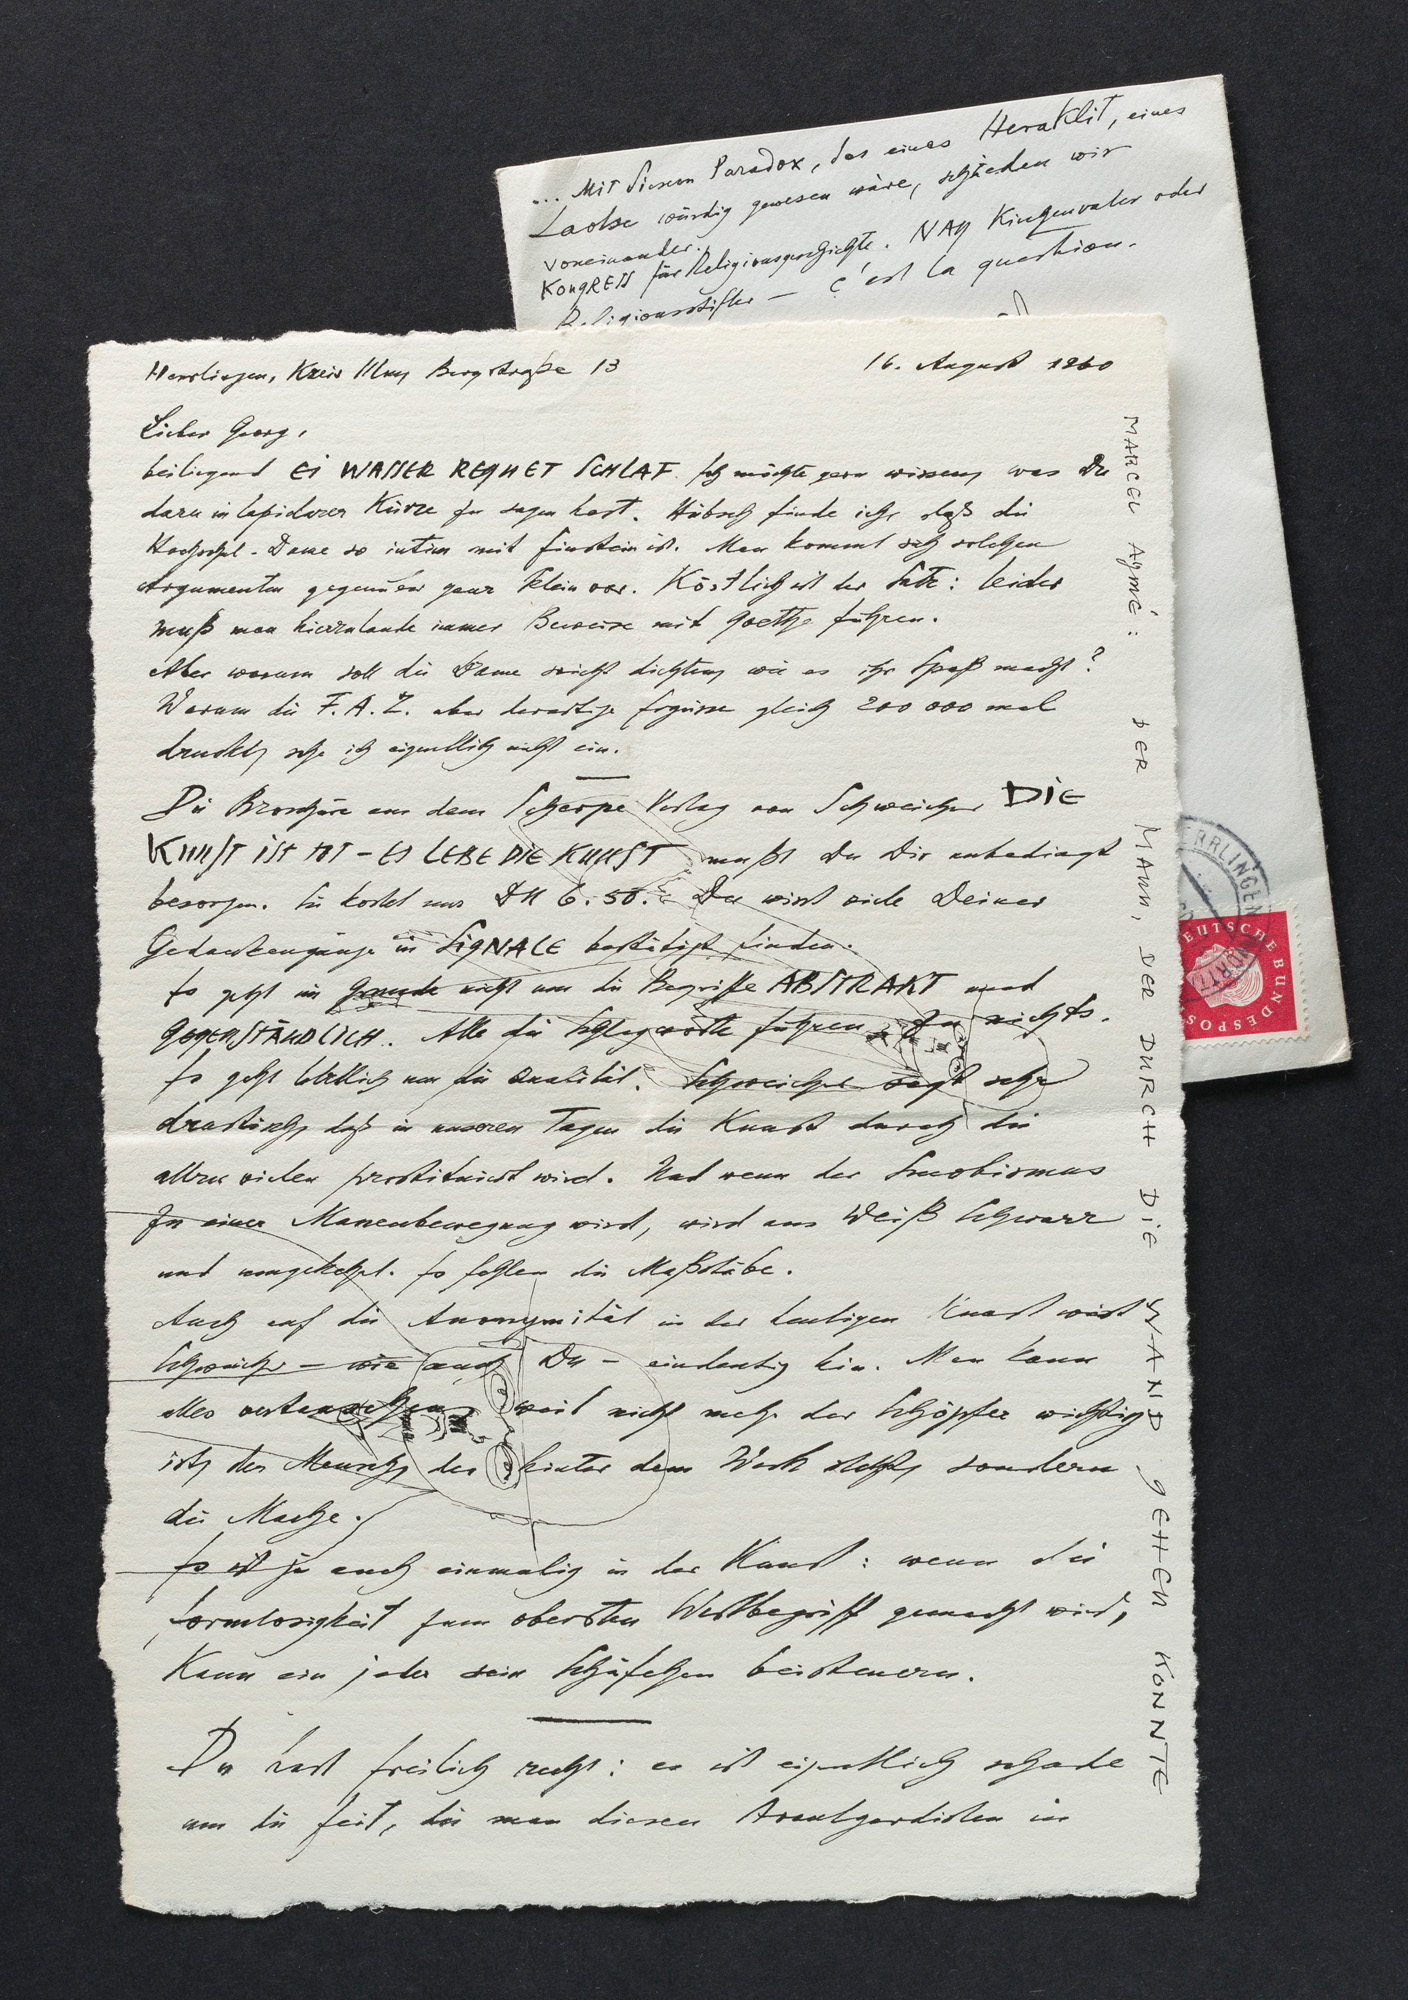 ... Mit diesem Paradox, das eines Heraklit, eines
Laotse würdig gewesen wäre, schieden wir
voneinander.
KongREss für Religionsgeschichte. NAy Kirchenvater oder
Religionsstifter – c'est la question.
Herrlingen, Kreis Ulm, Bergstraße 13
16. August 1960
Lieber Georg,
beiliegend Ei WASSER REGNET SCHLAF. Ich möchte gern wissen, was Du
dazu in lapidarer Kürze zu sagen hast. Hübsch finde ich, daß die
-Dame so intim mit Einstein ist. Man kommt sich solchen
Argumenten gegenüber ganz klein vor. Köstlich ist der Satz: leider
muß man hierzulande immer Beweise mit Goethe führen.
Aber warum soll die Dame nicht dichten, wie es ihr Spaß macht?
Warum die F.A.Z. aber derartige Ergüsse gleich 200 000 mal
druckt, sehe ich eigentlich nicht ein.
Die Broschüre aus dem Scherpe Verlag von Schweicher DIE
KUNST iST TOT – ES LEBE DIE KUNST mußt Du Dir unbedingt
besorgen. Sie kostet nur DM 6.50. Du wirst viele Deiner
Gedankengänge in SiGNALE bestätigt finden.
Es geht im Grunde nicht um die Begriffe ABSTRAKT und
GEGENSTÄNDLICH. Alle die Schlagworte führen zu nichts.
Es geht letztlich nur um Qualität. Schweicher sagt sehr
drastisch, daß in unseren Tagen die Kunst durch die
allzu vielen prostituiert wird. Und wenn der Snobismus
zu einer Massenbewegung wird, wird aus Weiß Schwarz
und umgekehrt. Es fehlen die Maßstäbe.
Auch auf die Anonymität in der heutigen Kunst weist
Schweicher – wie auch Du – eindeutig hin. Man kann
alles vertauschen, weil nicht mehr der Schöpfer wichtig
ist, der Mensch, der hinter dem Werk steht, sondern
die Mache.
Es ist ja auch einmalig in der Kunst: wenn die
Formlosigkeit zum obersten Wertbegriff gemacht wird,
kann ein jeder sein Schäfchen beisteuern.
Du hast freilich recht: es ist eigentlich schade
um die Zeit, die man diesen Avantgardisten in
MARCEL AYMÉ: DER MANN, DER DURCH DIE WAND GEHEN KONNTE
HERRLINGEN
DEUTSCHE BUNDESPOST